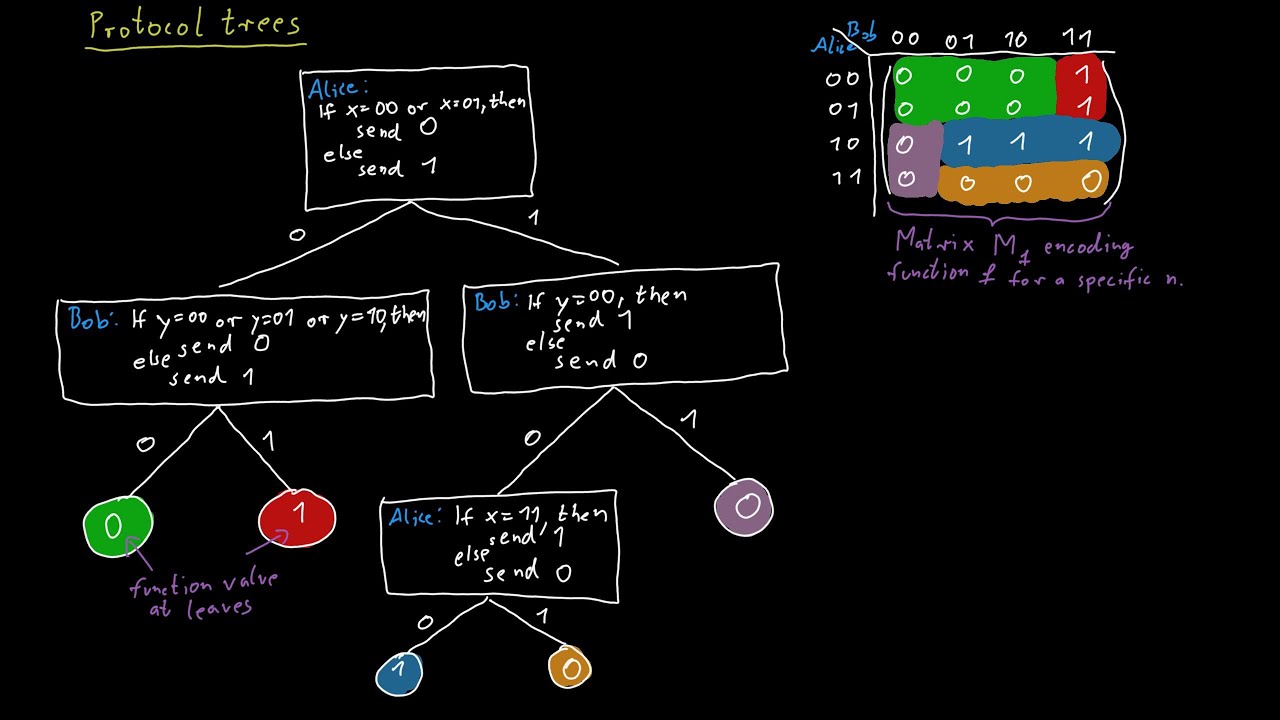 Protocol trees
Alice:
If x=00 or x=01, then
send 0
else
send 1
0
1
Bob: If y=00 or y=01 or y=10, then
send 0
else
send 1
Bob: If y=00, then
send 1
else
send 0
0
1
0
1
0
1
0
Alice: If x=11, then
send 1
else
send 0
function value
at leaves
0
1
1
0
Bob
Alice
00 01 10 11
00 0 0 0 1
01 0 0 0 1
10 0 1 1 1
11 0 0 0 0
Matrix M_f encoding
function f for a specific n.